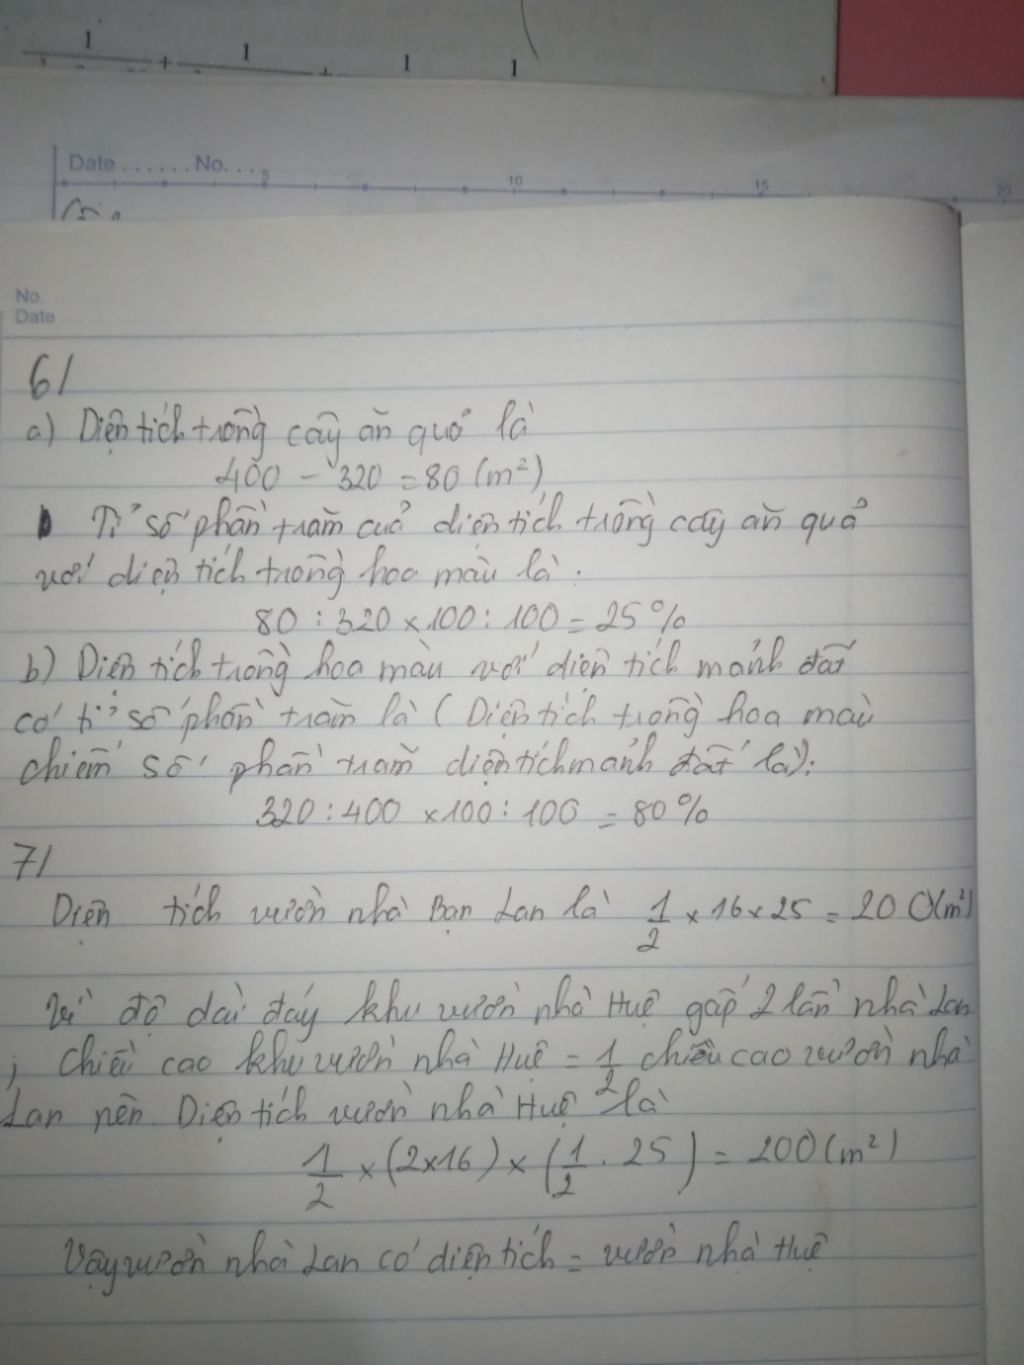 1 1 1 1
+ +
Date ...... No. ... 5 10 15 20
No. ........
Date ........
6/
a) Diện tích trồng cây ăn quả là
400 - 320 = 80 (m²)
Tỉ số phần trăm của diện tích trồng cây ăn quả
với diện tích trồng hoa màu là:
80 : 320 x 100 : 100 = 25%
b) Diện tích trồng hoa màu với diện tích mảnh đất
có tỉ số phần trăm là (Diện tích trồng hoa màu
chiếm số phần trăm diện tích mảnh đất là):
320 : 400 x 100 : 100 = 80%
7/
Diện tích vườn nhà Bạn Lan là 1/2 x 16 x 25 = 200 (m²)
Vì độ dài đáy khu vườn nhà Huệ gấp 2 lần nhà Lan
, chiều cao khu vườn nhà Huệ = 1/2 chiều cao vườn nhà
Lan nên Diện tích vườn nhà Huệ là
1/2 x (2x16) x (1/2 . 25) = 200 (m²)
Vậy vườn nhà Lan có diện tích = vườn nhà Huệ